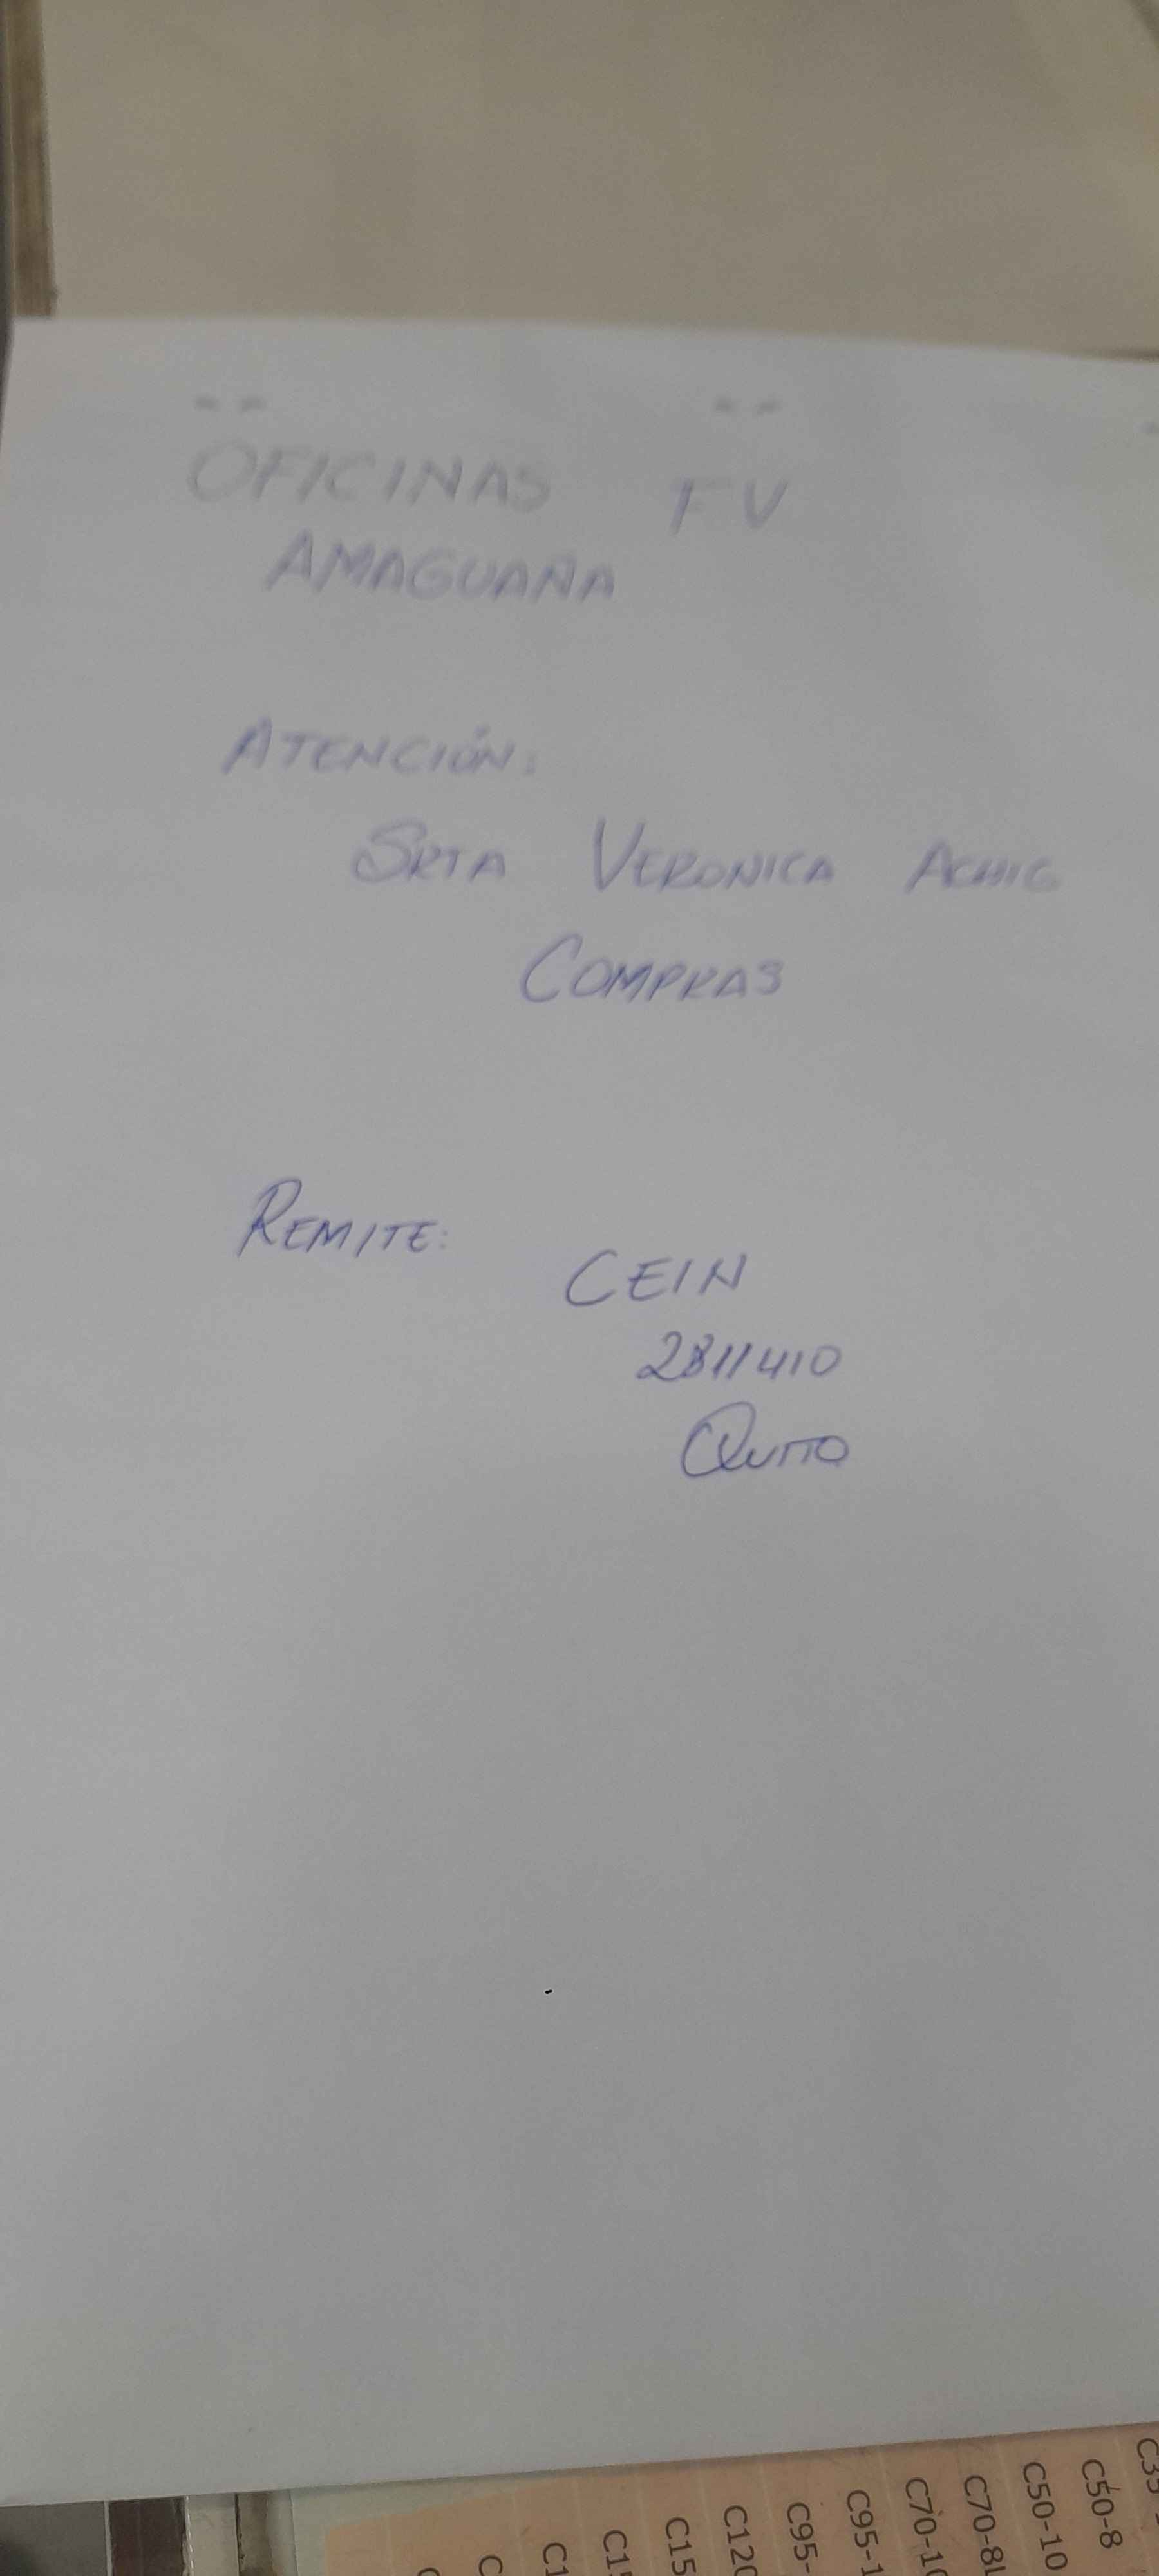 OFICINAS FV
AMAGUAÑA
ATENCIÓN:
SRTA VERONICA ACHIG
COMPRAS
REMITE:
CEIN
2811410
QUITO
C50-8
C50-10
C70-8
C70-10
C95-1
C95-
C120
C15